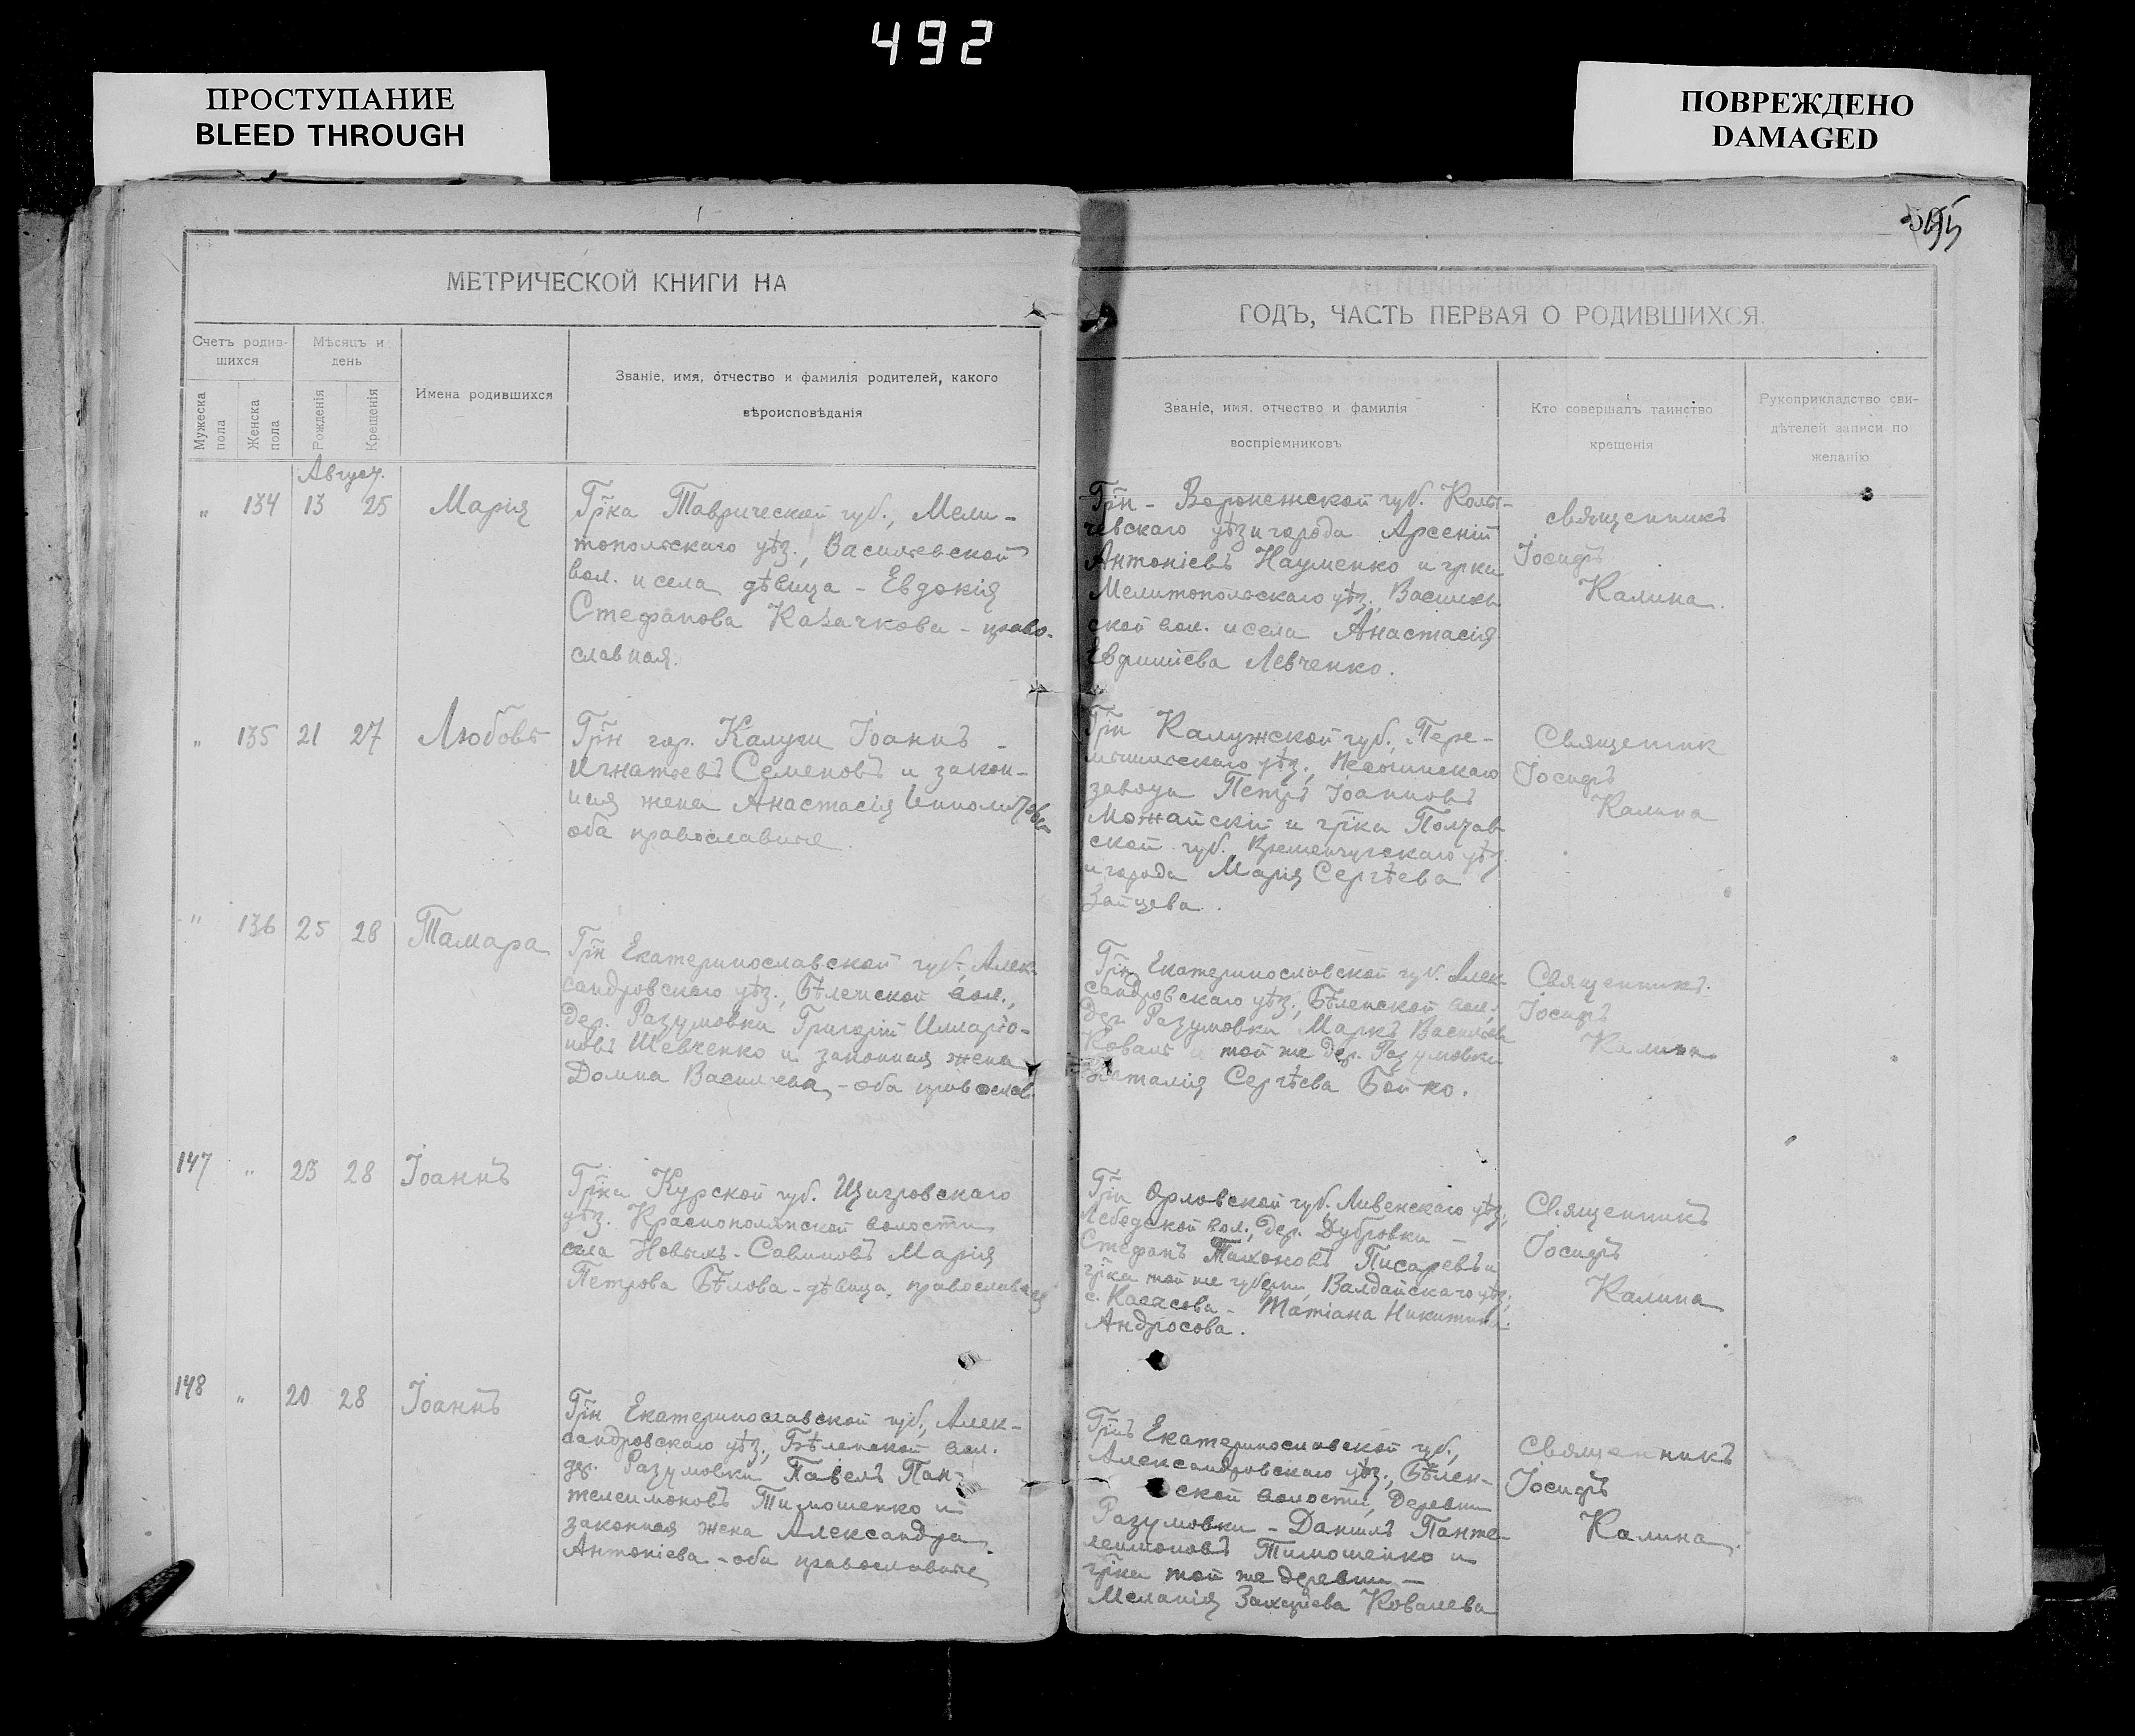 492
ПРОСТУПАНИЕ
BLEED THROUGH
ПОВРЕЖДЕНО
DAMAGED
МЕТРИЧЕСКОЙ КНИГИ НА
Счетъ родив-
шихся
Мѣсяцъ и
день
Мужеска
пола
Женска
пола
Рожденія
Крещенія
Имена родившихся
Званіе, имя, отчество и фамилія родителей, какого
вѣроисповѣданія
Август.
„ 134 13 25 Марія
Гр̃ка Таврической губ., Мели-
топольскаго уѣз., Васильевской
вол. и села дѣвица - Евдокія
Стефанова Казачкова - право-
славная.
„ 135 21 27 Любовь
Гр̃н гор. Калуги Іоаннъ
Игнатьевъ Семеновъ и закон-
ная жена Анастасія
оба православные
„ 136 25 28 Тамара
Гр̃н Екатеринославской губ., Алек-
сандровскаго уѣз., Бѣленской вол.,
дер. Разумовки Григорій Илларіо-
новъ Шевченко и законная жена
Домна Васильева - оба православ.
147 „ 23 28 Іоаннъ
Гр̃ка Курской губ. Щигровскаго
уѣз. Краснополянской волости
села Новыхъ-Савиновъ Марія
Петрова Бѣлова - дѣвица, православная
148 „ 20 28 Іоаннъ
Гр̃н Екатеринославской губ., Алек-
сандровскаго уѣз., Бѣленской вол.
дер. Разумовки Павелъ Пан-
телеимоновъ Тимошенко и
законная жена Александра
Антоніева - оба православные
ГОДЪ, ЧАСТЬ ПЕРВАЯ О РОДИВШИХСЯ.
Званіе, имя, отчество и фамилія
воспріемниковъ
Кто совершалъ таинство
крещенія
Рукоприкладство сви-
дѣтелей записи по
желанію
Гр̃н - Воронежской губ.
уѣз и города Арсеній
Антоніевъ Науменко и гр̃ка
Мелитопольскаго уѣз., Васильев-
ской вол. и села Анастасія
Левченко.
священникъ
Іосифъ
Калина.
Гр̃н Калужской губ., Пере-
мышльскаго уѣз.,
завода Петръ Іоанновъ
Можайскій и гр̃ка Полтав-
ской губ. Кременчугскаго уѣз.
и города Марія Сергѣева
Зайцева.
Священник
Іосифъ
Калина
Гр̃н Екатеринославской губ. Алек-
сандровскаго уѣз., Бѣленской вол.,
дер. Разумовки Маркъ Васильевъ
Коваль и той же дер. Разумовки
Наталія Сергѣева Бойко.
Священникъ.
Іосифъ
Калина
Гр̃н Орловской губ. Ливенскаго уѣз.,
Лебедской вол., дер. Дубровки -
Стефанъ Тихоновъ Писаревъ и
гр̃ка той же губерн, Валдайскаго уѣз.,
с. - Татіана Никитина
Андросова.
Священникъ
Іосифъ
Калина
Гр̃нъ Екатеринославской губ.,
Александровскаго уѣз., Бѣлен-
ской волости, деревни
Разумовки - Даниилъ Панте-
леимоновъ Тимошенко и
гр̃ка той же деревни -
Меланія Ковалева
Священникъ
Іосифъ
Калина.